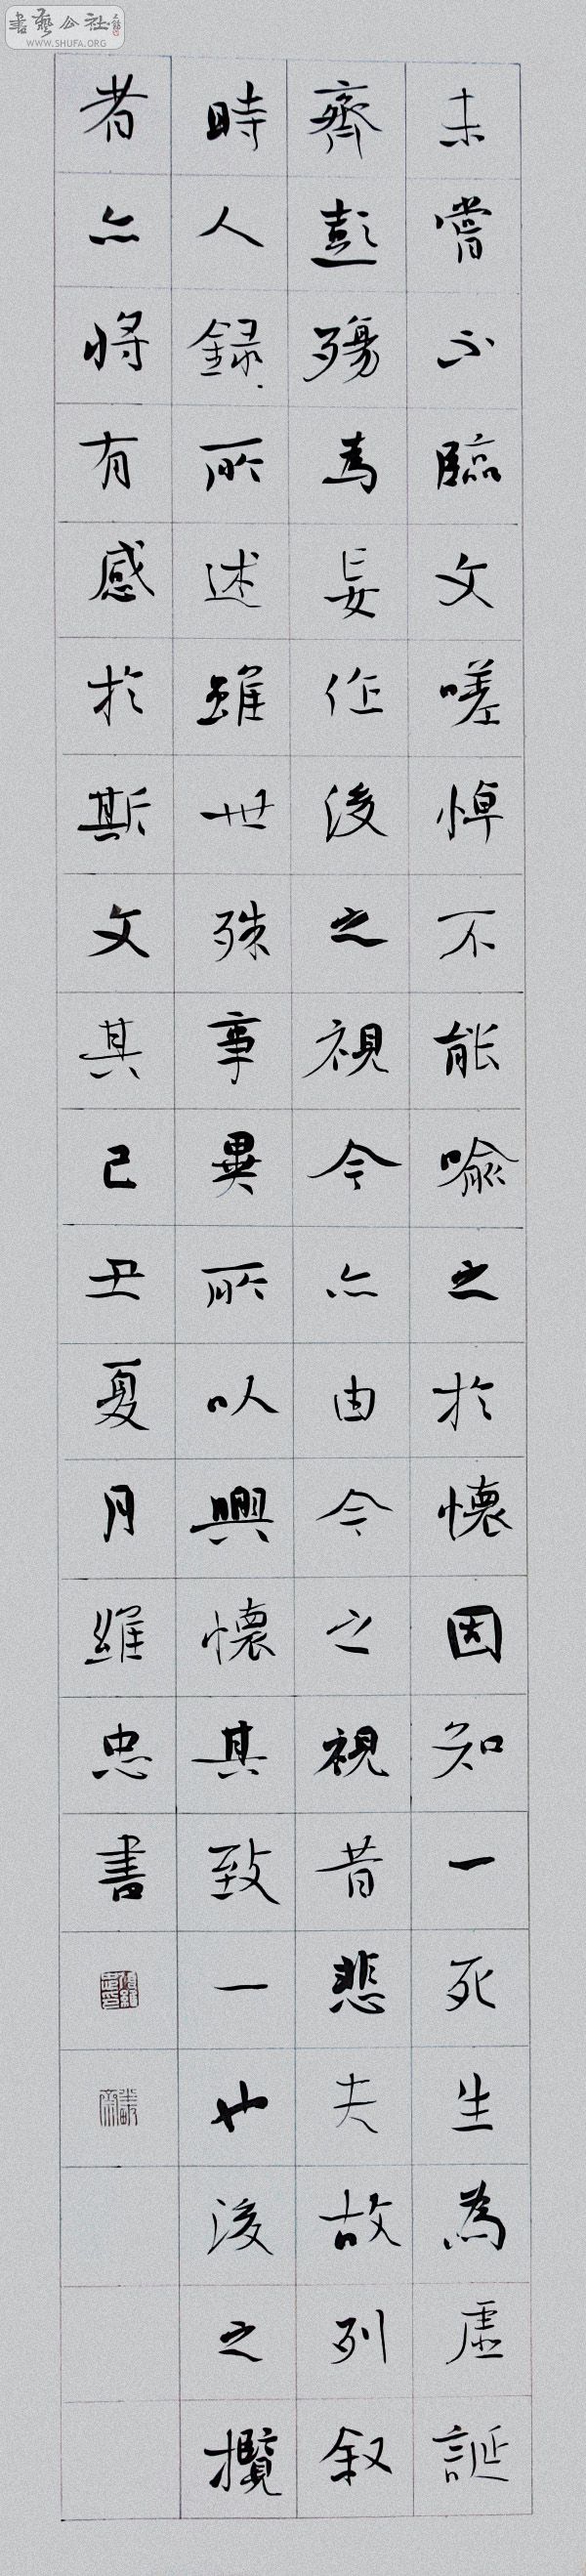 書藝公社
WWW.SHUFA.ORG
未嘗不臨文嗟悼不能喻之於懷因知一死生為虛誕
齊彭殤為妄作後之視今亦由今之視昔悲夫故列叙
時人録所述雖世殊事異所以興懷其致一也後之攬
者亦將有感於斯文其己丑夏月維忠書